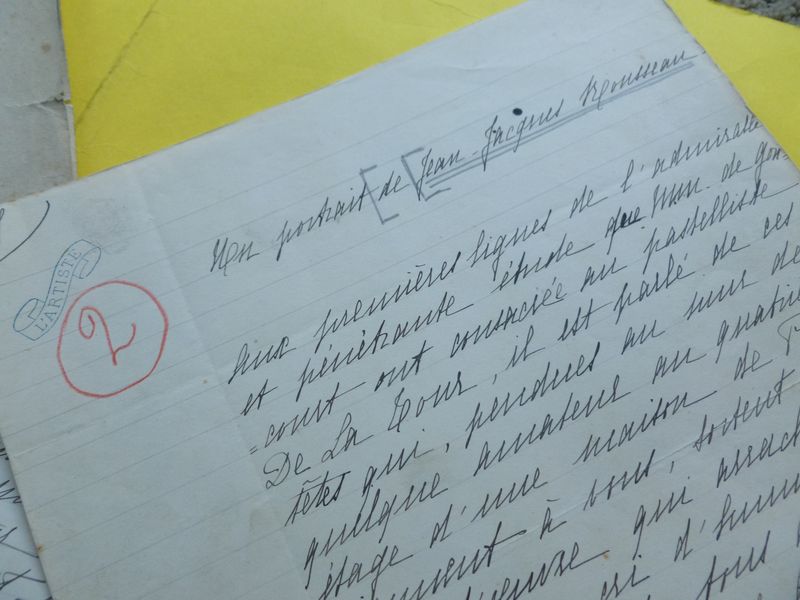 L'ARTISTE
2
Un portrait de Jean-Jacques Rousseau
Aux premières lignes de l'admirable
et pénétrante étude que MM. de Gon-
=court ont consacrée au pastelliste
De La Tour, il est parlé de ces
têtes qui, pendues au mur de
quelque amateur au quatriè
étage d'une maison de
à vous, sortent
qui arrach
cri d'hum
tous